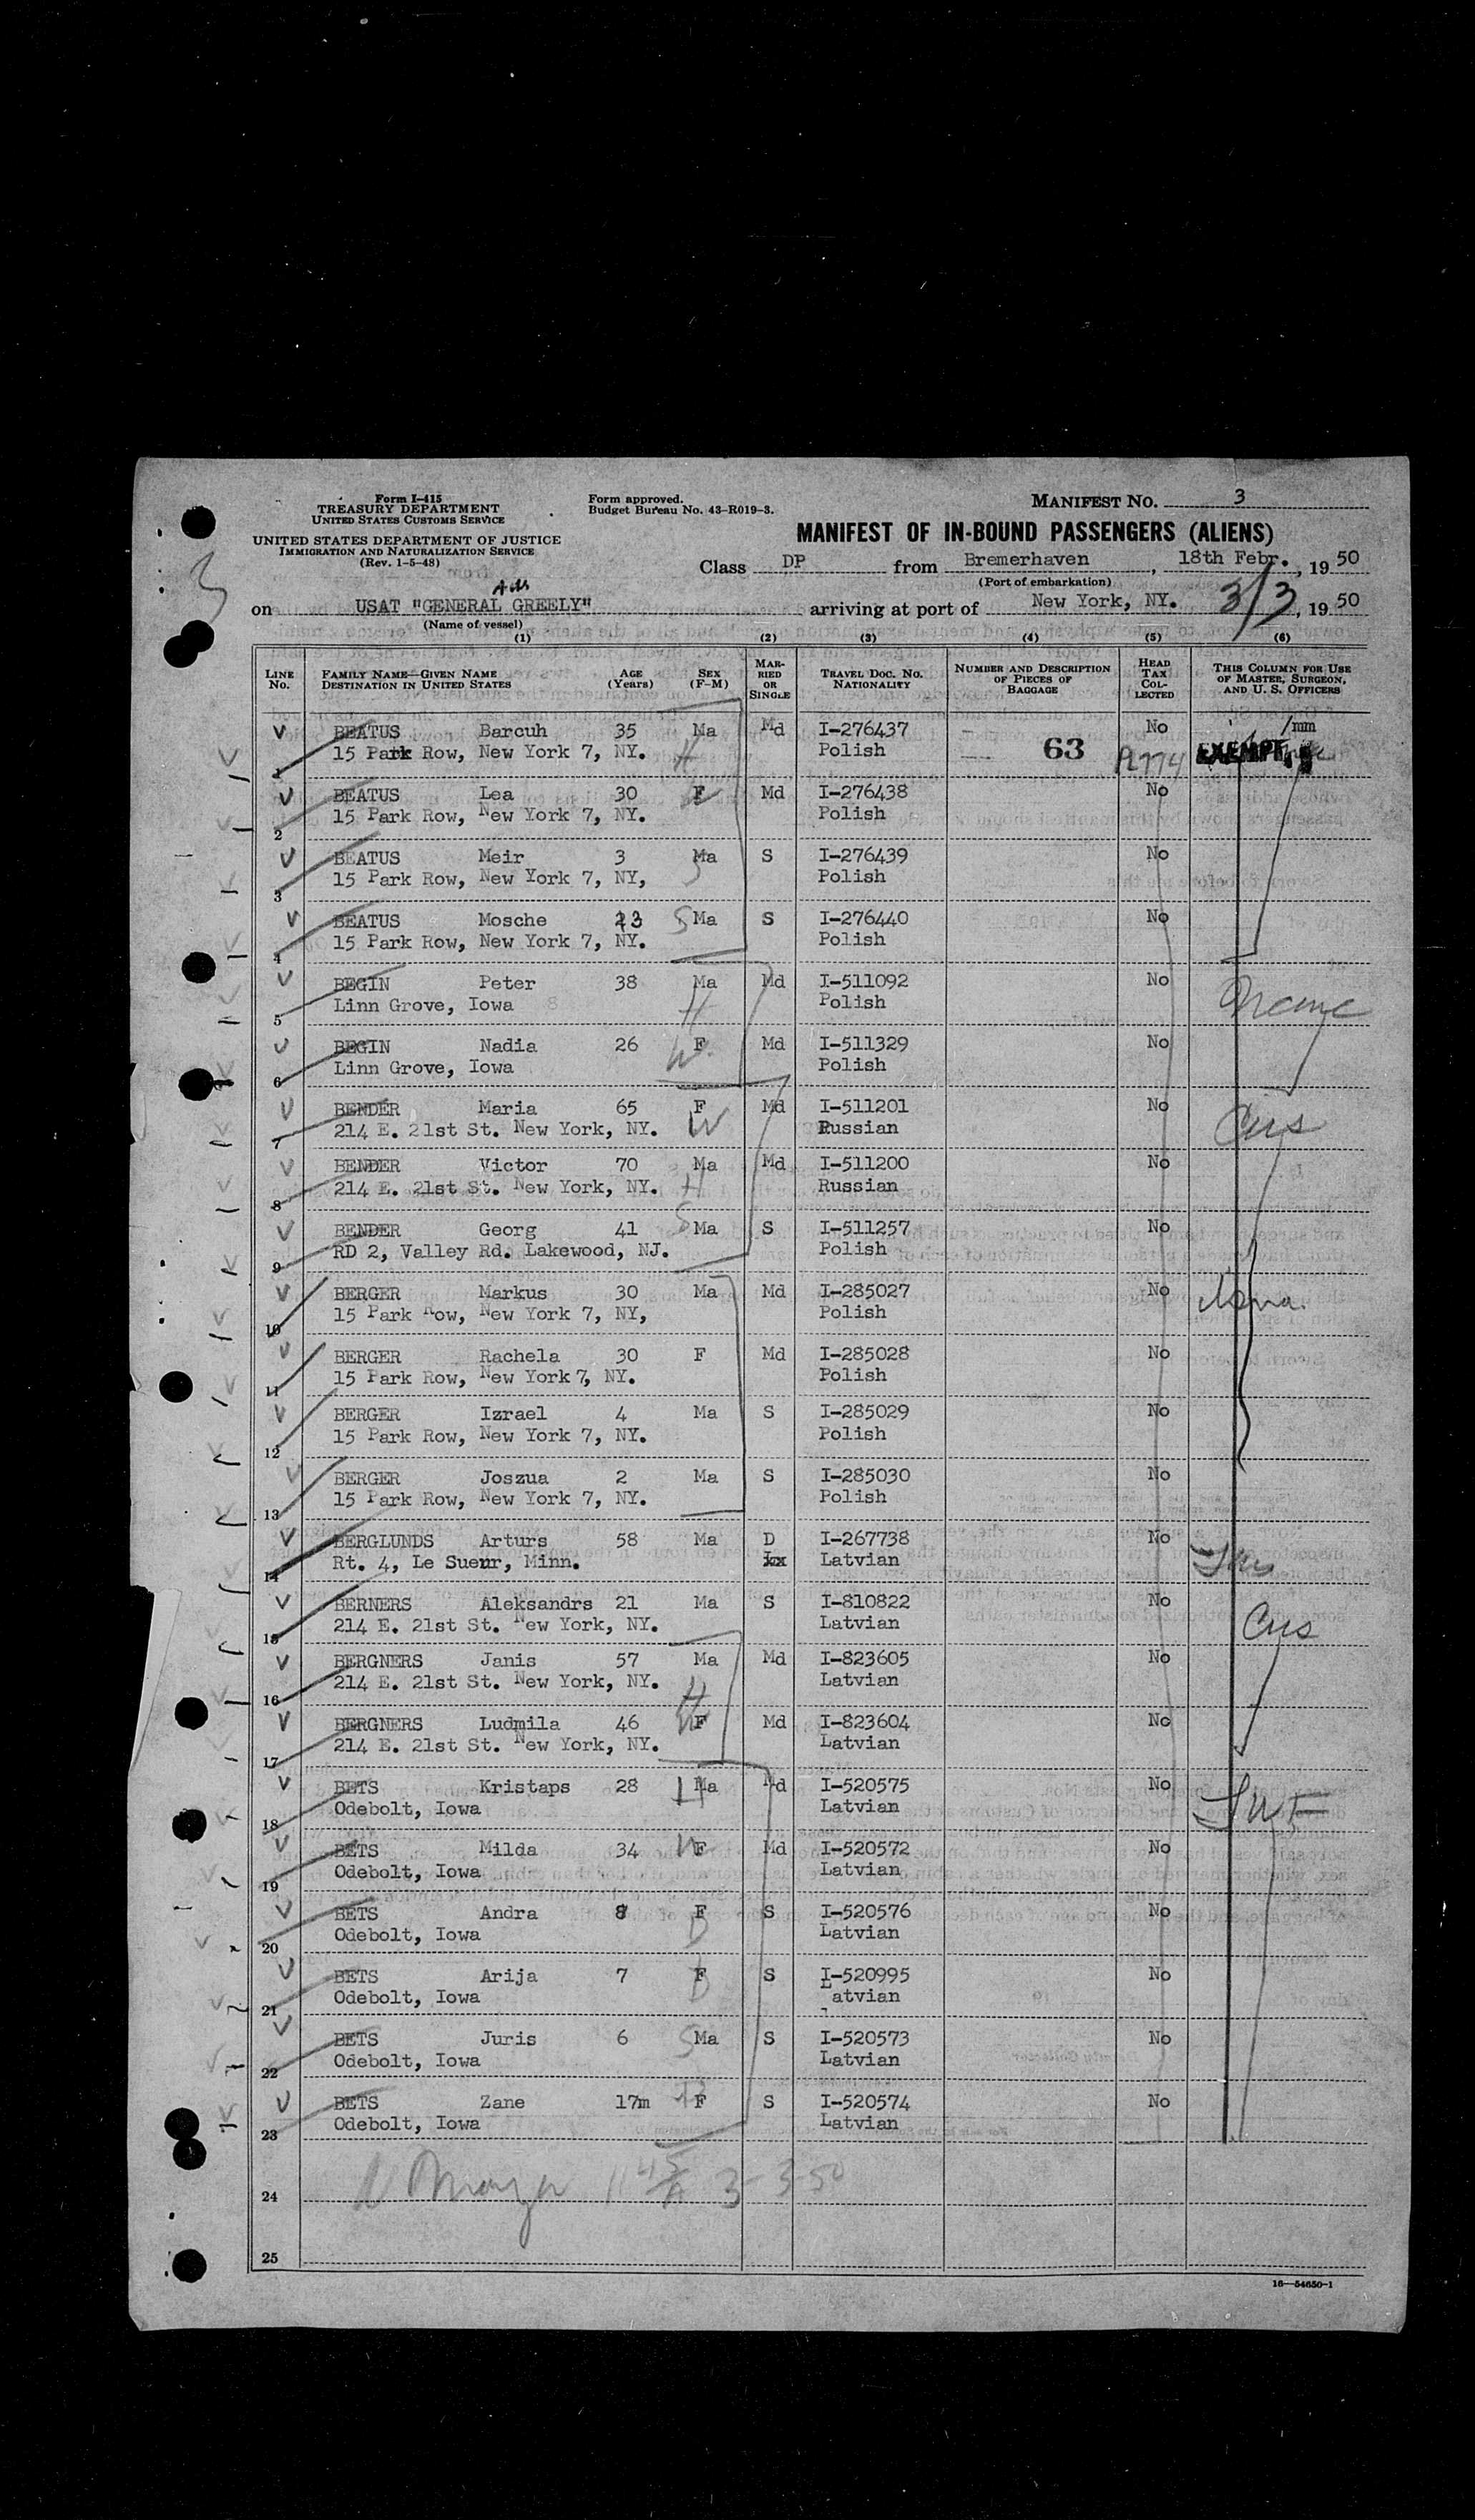 Form I-415
TREASURY DEPARTMENT
UNITED STATES CUSTOMS SERVICE
UNITED STATES DEPARTMENT OF JUSTICE
IMMIGRATION AND NATURALIZATION SERVICE
(Rev. 1-5-48)
Form approved.
Budget Bureau No. 43-R019-3.
MANIFEST NO. 3
MANIFEST OF IN-BOUND PASSENGERS (ALIENS)
Class DP from Bremerhaven, 18th Febr., 1950
(Port of embarkation)
on USAT "GENERAL GREELY" arriving at port of New York, NY. 3/3, 1950
(Name of vessel)
(1) (2) (3) (4) (5) (6)
LINE No. FAMILY NAME—GIVEN NAME DESTINATION IN UNITED STATES AGE (Years) SEX (F-M) MARRIED OR SINGLE TRAVEL DOC. NO. NATIONALITY NUMBER AND DESCRIPTION OF PIECES OF BAGGAGE HEAD TAX COLLECTED THIS COLUMN FOR USE OF MASTER, SURGEON, AND U. S. OFFICERS
BEATUS Barcuh 35 Ma Md I-276437 No /mm
1 15 Park Row, New York 7, NY. H Polish 63 PL774 EXEMPT
BEATUS Lea 30 F Md I-276438 No
2 15 Park Row, New York 7, NY. Polish
BEATUS Meir 3 Ma S I-276439 No
3 15 Park Row, New York 7, NY, Polish
BEATUS Mosche 23 S Ma S I-276440 No
4 15 Park Row, New York 7, NY. Polish
BEGIN Peter 38 Ma Md I-511092 No
5 Linn Grove, Iowa H Polish
BEGIN Nadia 26 F Md I-511329 No
6 Linn Grove, Iowa W Polish
BENDER Maria 65 F Md I-511201 No
7 214 E. 21st St. New York, NY. W Russian Cws
BENDER Victor 70 Ma Md I-511200 No
8 214 E. 21st St. New York, NY. H Russian
BENDER Georg 41 S Ma S I-511257 No
9 RD 2, Valley Rd. Lakewood, NJ. Polish
BERGER Markus 30 Ma Md I-285027 No
10 15 Park Row, New York 7, NY, Polish
BERGER Rachela 30 F Md I-285028 No
11 15 Park Row, New York 7, NY. Polish
BERGER Izrael 4 Ma S I-285029 No
12 15 Park Row, New York 7, NY. Polish
BERGER Joszua 2 Ma S I-285030 No
13 15 Park Row, New York 7, NY. Polish
BERGLUNDS Arturs 58 Ma D I-267738 No
14 Rt. 4, Le Sueur, Minn. Latvian
BERNERS Aleksandrs 21 Ma S I-810822 No
15 214 E. 21st St. New York, NY. Latvian Cws
BERGNERS Janis 57 Ma Md I-823605 No
16 214 E. 21st St. New York, NY. H Latvian
BERGNERS Ludmila 46 W F Md I-823604 No
17 214 E. 21st St. New York, NY. Latvian
BETS Kristaps 28 H Ma Md I-520575 No
18 Odebolt, Iowa Latvian LWF
BETS Milda 34 W F Md I-520572 No
19 Odebolt, Iowa Latvian
BETS Andra 8 F S I-520576 No
20 Odebolt, Iowa D Latvian
BETS Arija 7 F S I-520995 No
21 Odebolt, Iowa D Latvian
BETS Juris 6 S Ma S I-520573 No
22 Odebolt, Iowa Latvian
BETS Zane 17m D F S I-520574 No
23 Odebolt, Iowa Latvian
24 3-3-50
25
16—54650-1